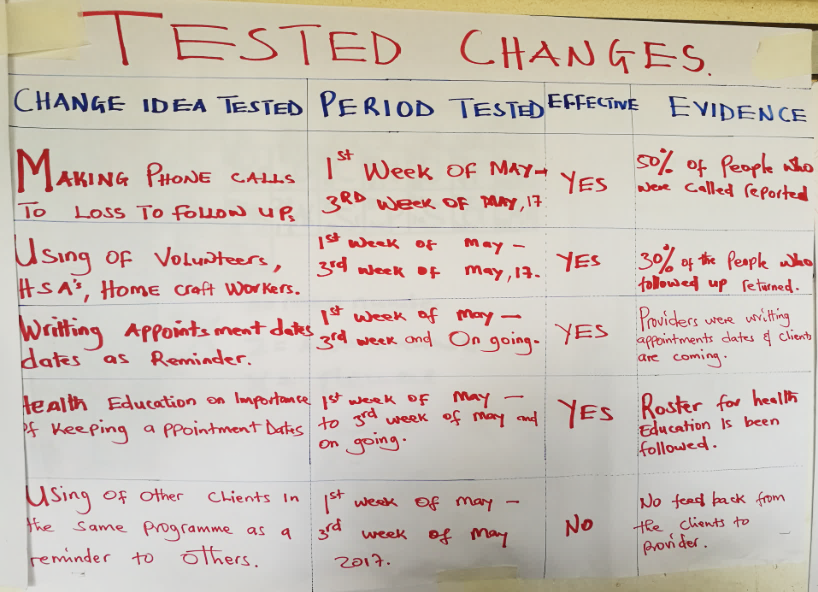 TESTED CHANGES.
CHANGE IDEA TESTED
PERIOD TESTED
EFFECTIVE
EVIDENCE
MAKING PHONE CALLS
TO LOSS TO FOLLOW UPS
1st WEEK OF MAY→
3RD WEEK OF MAY, 17
YES
50% of People who
were called reported
Using of Volunteers,
HSA's, Home Craft Workers.
1st week of may –
3rd week of may, 17.
YES
30% of the People who
followed up returned.
Writting Appointsment dates
dates as Reminder.
1st week of may –
3rd week and On going.
YES
Providers were writting
appointments dates & clients
are coming.
Health Education on Importance
of Keeping appointment Dates
1st week of May –
to 3rd week of may and
on going.
YES
Roster for health
Education Is been
followed.
Using of other clients In
the same programme as a
reminder to others.
1st week of may –
3rd week of may
2017.
No
No feed back from
the clients to
provider.